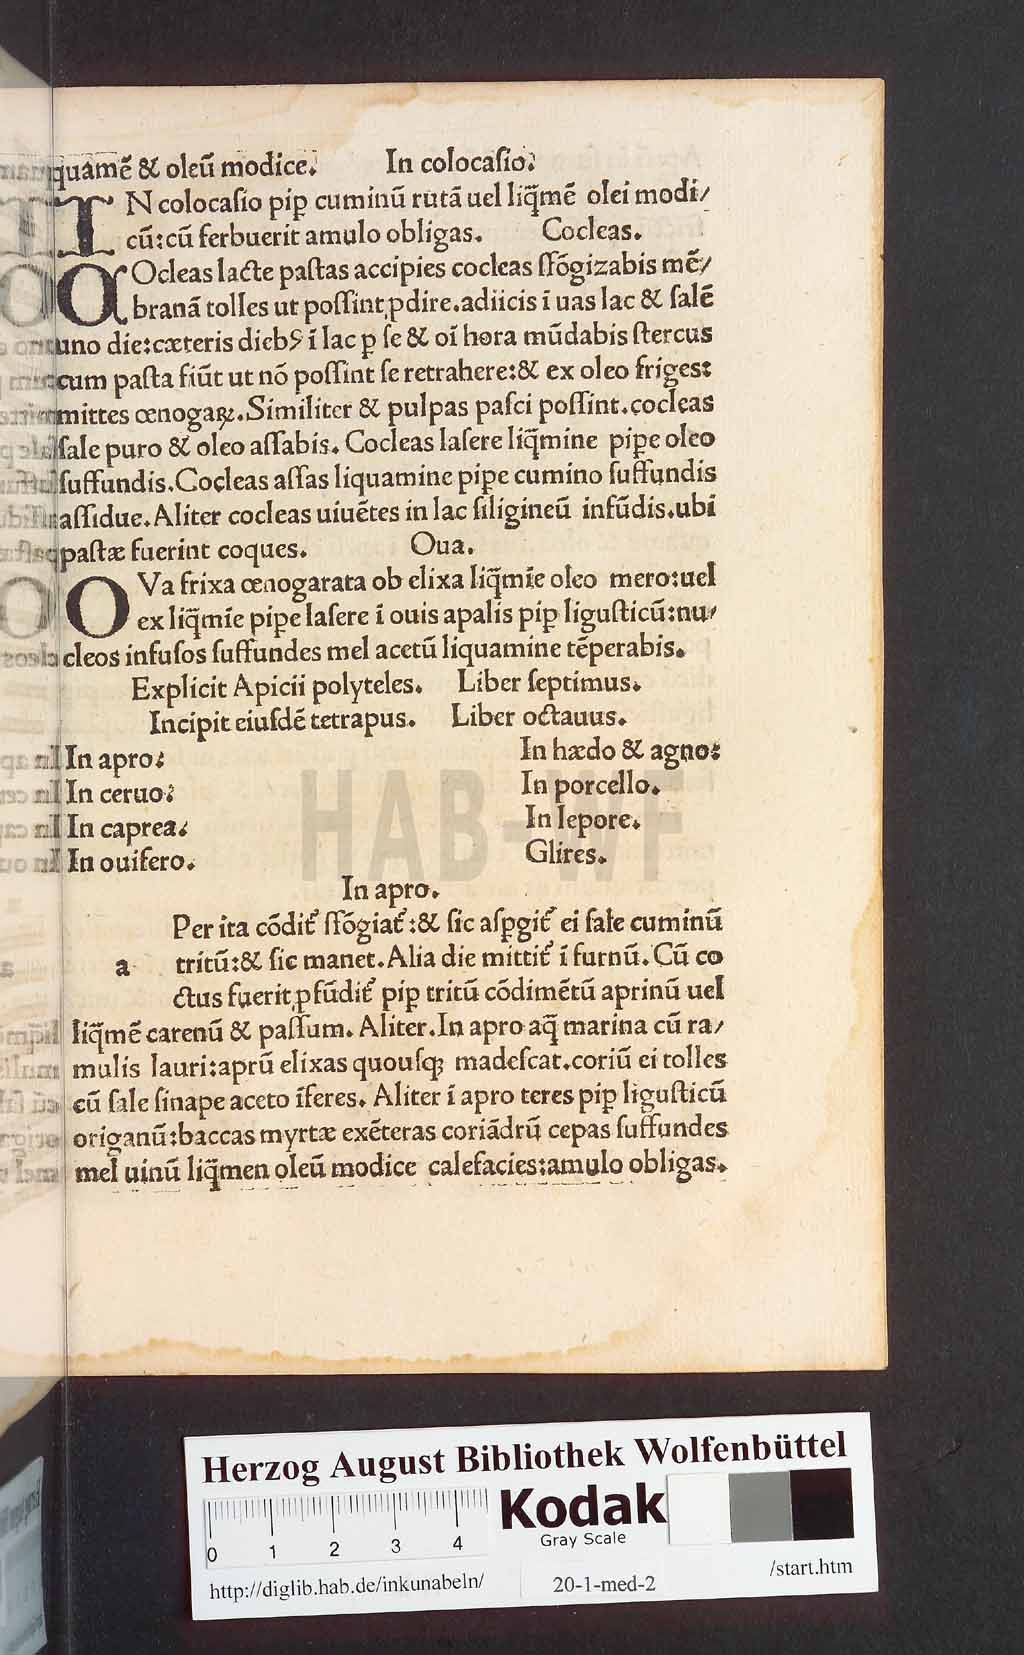 quamē & oleū modice. In colocaſio.
IN colocaſio pip̱ cuminū rutā uel liq̄mē olei modi/
cū:cū ferbuerit amulo obligas. Cocleas.
COcleas lacte paſtas accipies cocleas ſſōgizabis mē/
branā tolles ut poſſint ꝓdire.adiicis ī uas lac & ſalē
uno die:cæteris diebꝰ ī lac ꝑ ſe & oī hora mūdabis ſtercus
cum paſta fiūt ut nō poſſint ſe retrahere:& ex oleo friges:
mittes œnogaꝝ.Similiter & pulpas paſci poſſint.cocleas
ſale puro & oleo aſſabis. Cocleas laſere liq̄mine piꝑe oleo
ſuffundis.Cocleas aſſas liquamine piꝑe cumino ſuffundis
aſſidue.Aliter cocleas uiuētes in lac ſiligineū infūdis.ubi
paſtæ fuerint coques. Oua.
OVa frixa œnogarata ob elixa liq̄mīe oleo mero:uel
ex liq̄mīe piꝑe laſere ī ouis apalis piꝑ liguſticū:nu/
cleos infuſos ſuffundes mel acetū liquamine tēperabis.
Explicit Apicii polyteles. Liber ſeptimus.
Incipit eiuſdē tetrapus. Liber octauus.
In apro. In hædo & agno:
In ceruo. In porcello.
In caprea. In lepore.
In ouifero. Glires.
In apro.
a Per ita cōditᷣ ſſōgiatᷣ:& ſic aſꝑgitᷣ ei ſale cuminū
tritū:& ſic manet.Alia die mittitᷣ ī furnū.Cū co
ctus fuerit ꝑfūditᷣ piꝑ tritū cōdimētū aprinū uel
liq̄mē carenū & paſſum. Aliter.In apro aq̄ marina cū ra/
mulis lauri:aprū elixas quouſqꝫ madeſcat.coriū ei tolles
cū ſale ſinape aceto īferes. Aliter ī apro teres piꝑ liguſticū
origanū:baccas myrtæ exēteras coriādrū cepas ſuffundes
mel uinū liq̄men oleū modice calefacies:amulo obligas.
HAB-WF
Herzog August Bibliothek Wolfenbüttel
0 1 2 3 4
Kodak
Gray Scale
http://diglib.hab.de/inkunabeln/ 20-1-med-2 /start.htm